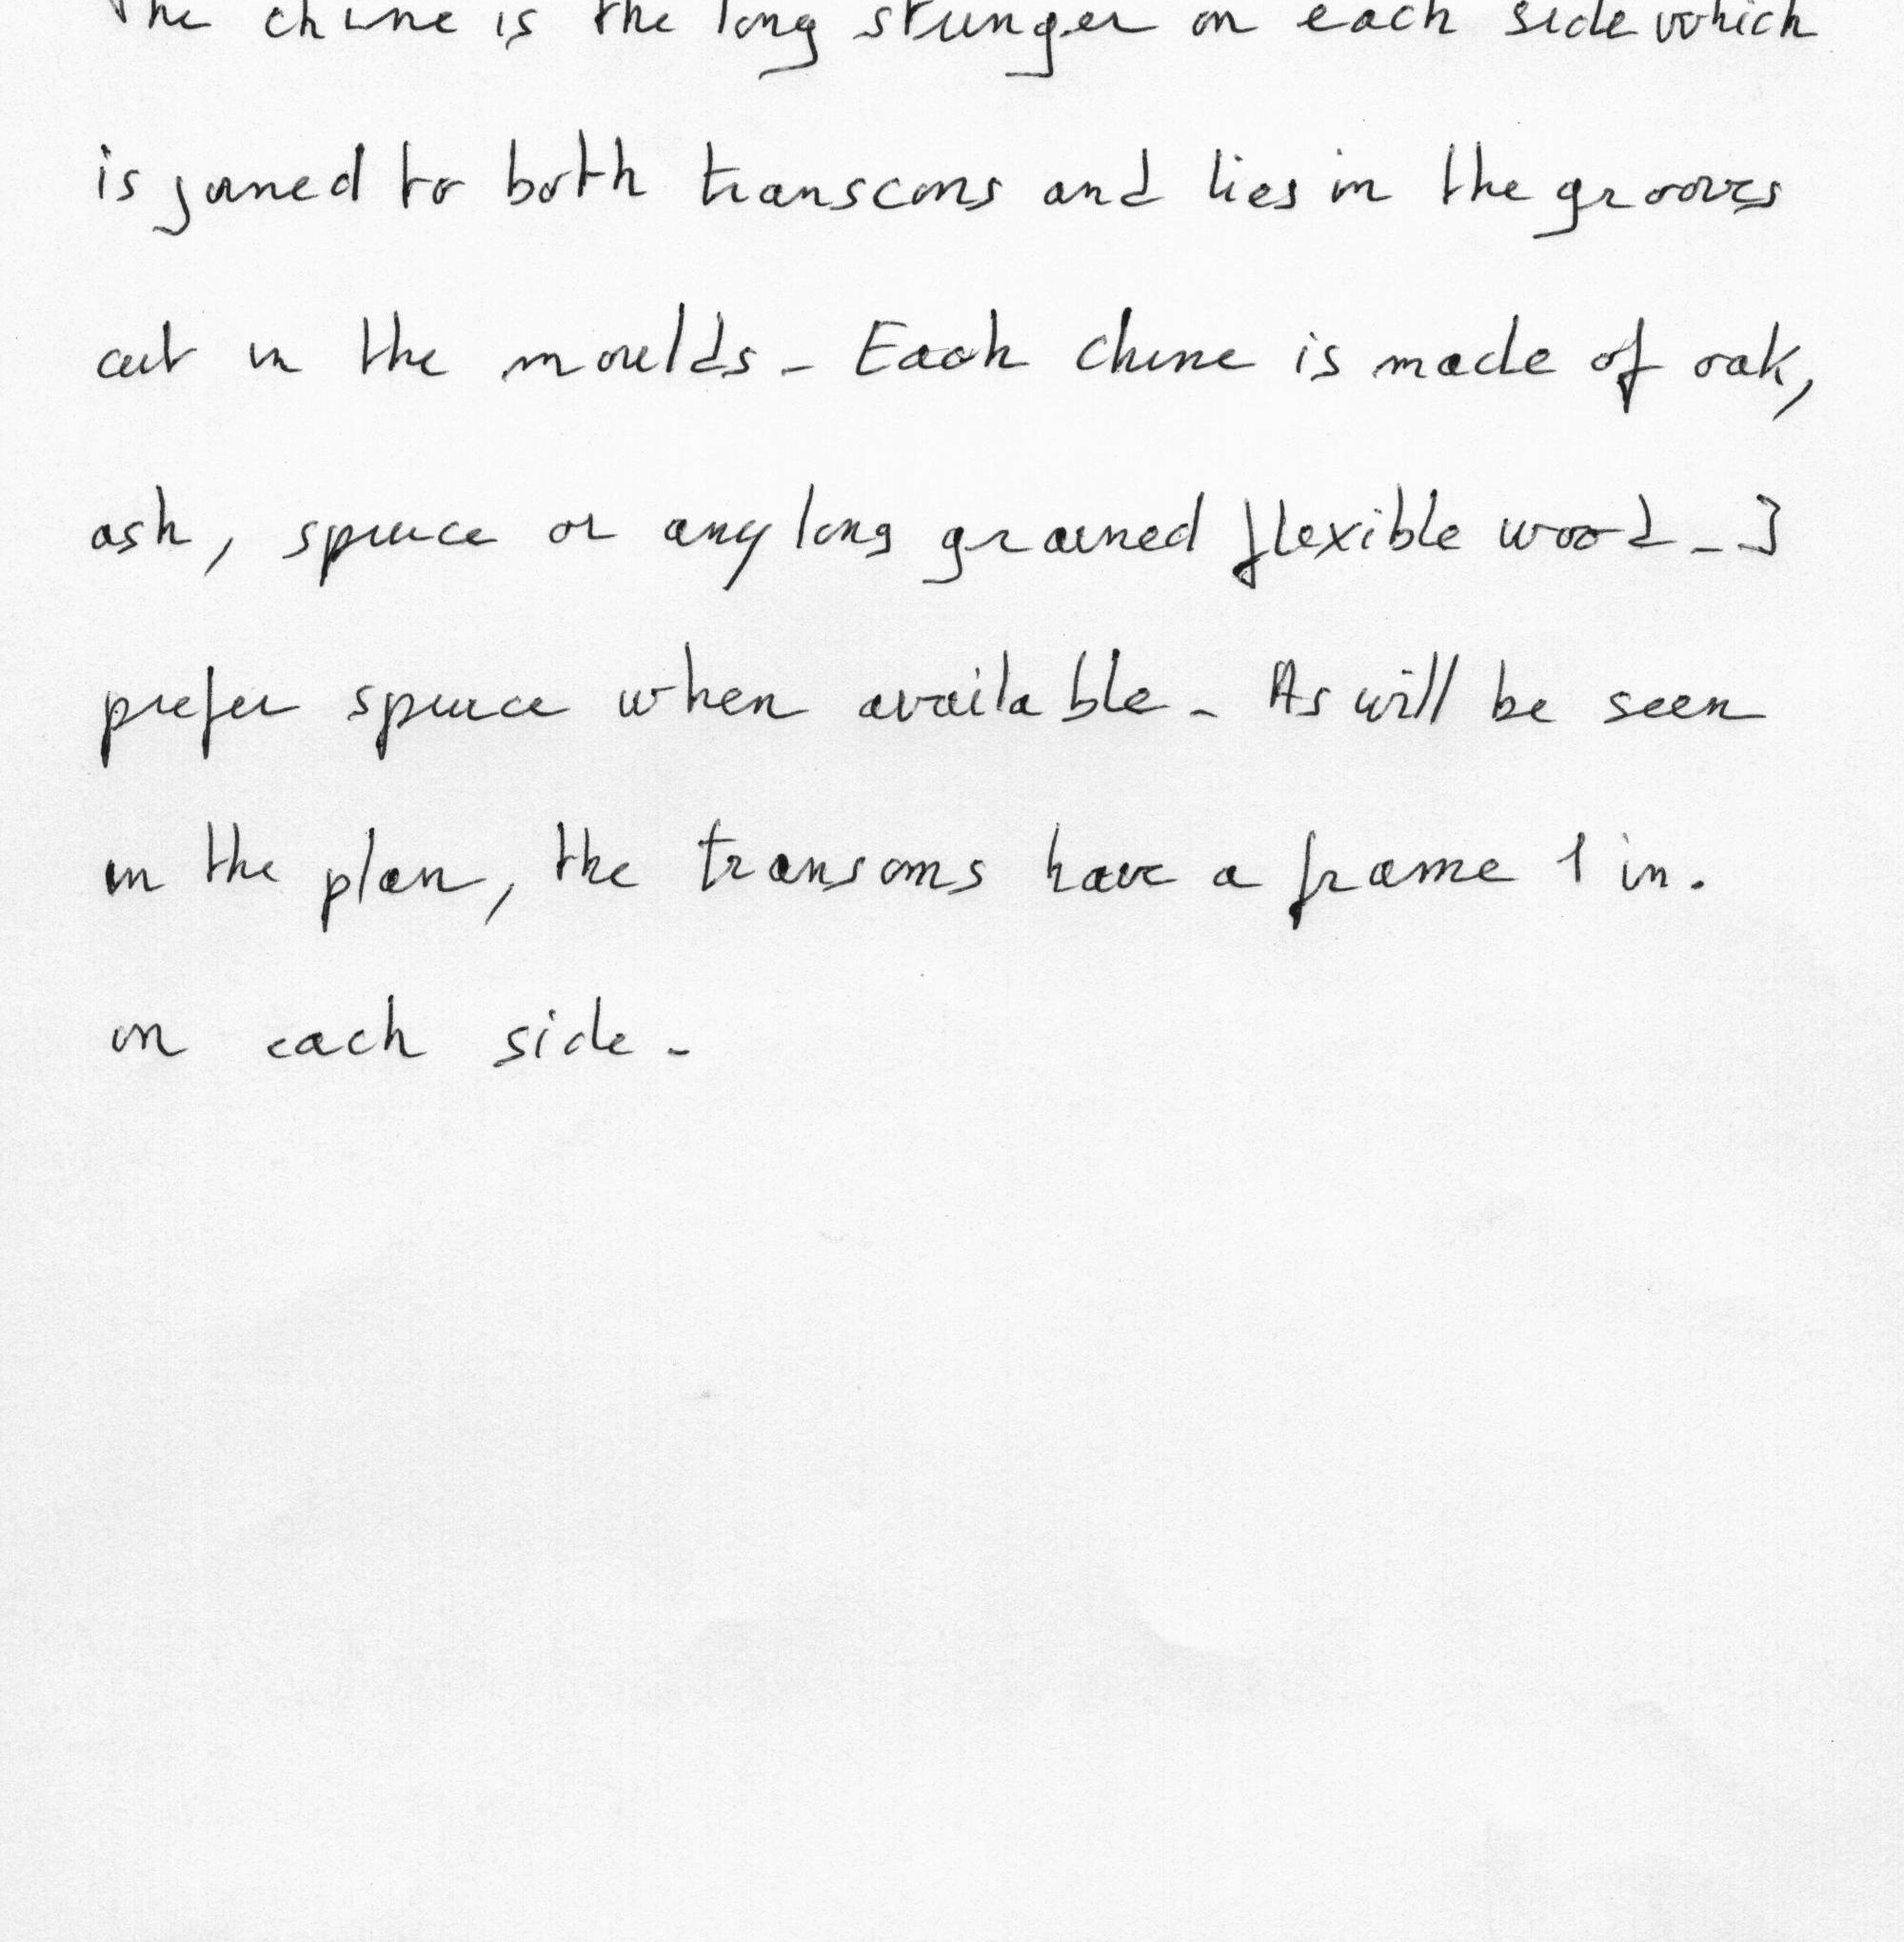 The chine is the long stringer on each side which
is joined to both transoms and lies in the grooves
cut in the moulds - Each chine is made of oak,
ash, spruce or any long grained flexible wood - I
prefer spruce when available - As will be seen
in the plan, the transoms have a frame 1 in.
on each side -